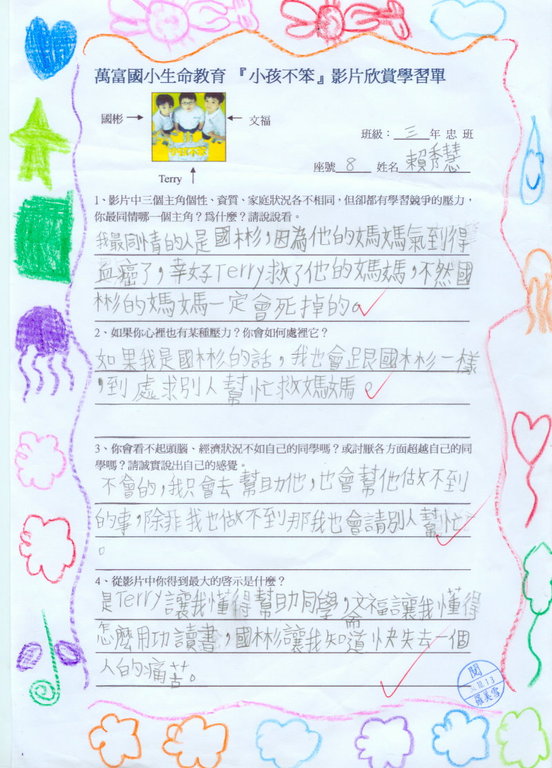 萬富國小生命教育『小孩不笨』影片欣賞學習單
國彬 → ← 文福
班級：三 年 忠 班
座號 8 姓名 賴秀慧
Terry
1、影片中三個主角個性、資質、家庭狀況各不相同，但卻都有學習競爭的壓力，
你最同情哪一個主角？為什麼？請說說看。
我最同情的人是國彬，因為他的媽媽氣到得
血癌了，幸好Terry救了他的媽媽，不然國
彬的媽媽一定會死掉的。
2、如果你心裡也有某種壓力？你會如何處裡它？
如果我是國彬的話，我也會跟國彬一樣
，到處求別人幫忙救媽媽。
3、你會看不起頭腦、經濟狀況不如自己的同學嗎？或討厭各方面超越自己的同
學嗎？請誠實說出自己的感覺。
不會的，我只會去幫助他，也會幫他做不到
的事，除非我也做不到那我也會請別人幫忙
。
4、從影片中你得到最大的啓示是什麼？
是Terry讓我懂得幫助同學，文福讓我懂得
怎麼用功讀書，國彬讓我知道快失去一個
人的痛苦。
閱
羅美雪